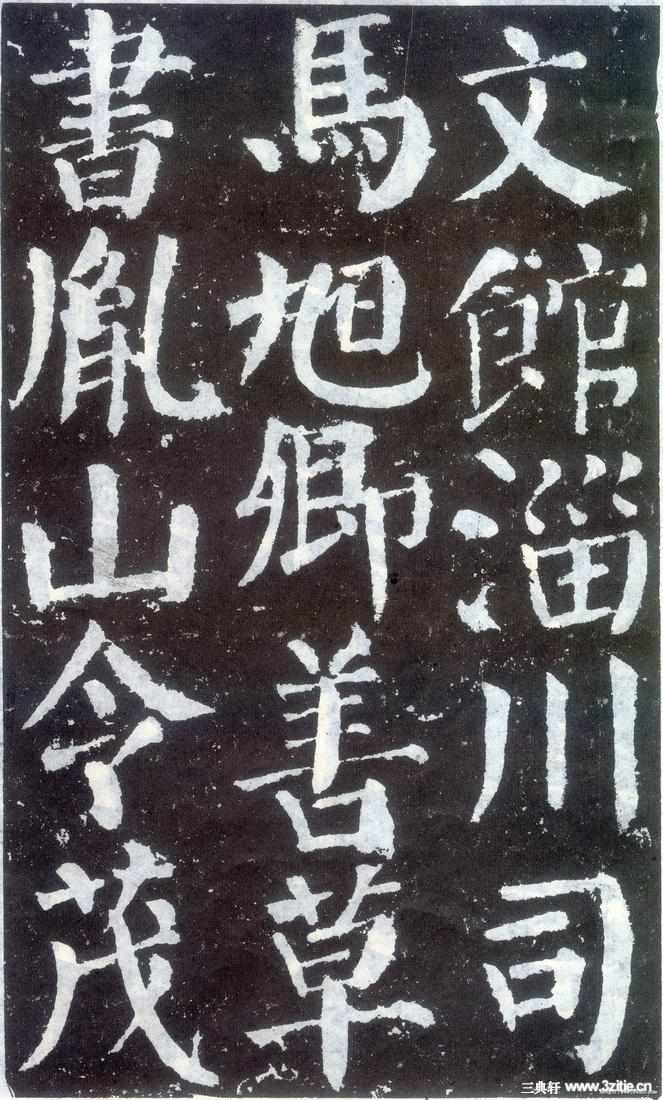 文館淄川司
馬旭卿善草
書胤山令茂
三典轩 www.3zitie.cn